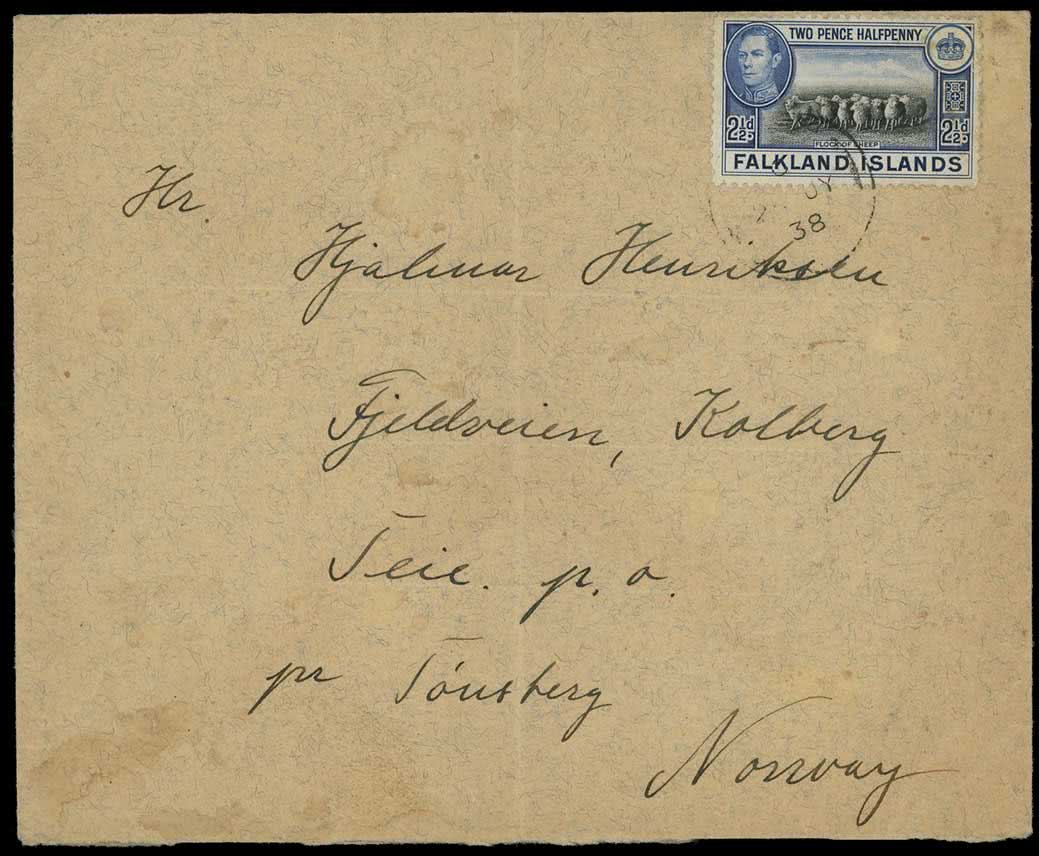 TWO PENCE HALFPENNY
2½d 2½d
FLOCK OF SHEEP
FALKLAND ISLANDS
JY
38
Hr.
Hjalmar Henriksen
Fjeldveien, Kolberg
Teie. p.o.
pr Tónsberg
Norway